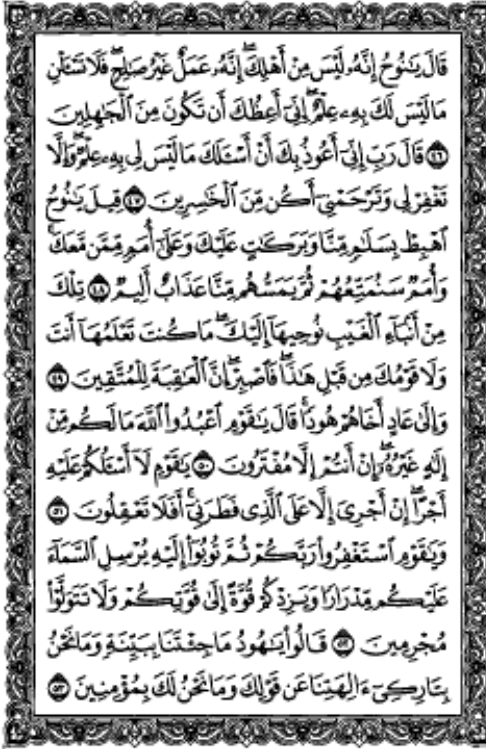 قَالَ يَٰنُوحُ إِنَّهُۥ لَيْسَ مِنْ أَهْلِكَ ۖ إِنَّهُۥ عَمَلٌ غَيْرُ صَٰلِحٍ ۖ فَلَا تَسْـَٔلْنِ
مَا لَيْسَ لَكَ بِهِۦ عِلْمٌ ۖ إِنِّىٓ أَعِظُكَ أَن تَكُونَ مِنَ ٱلْجَٰهِلِينَ
٤٦ قَالَ رَبِّ إِنِّىٓ أَعُوذُ بِكَ أَنْ أَسْـَٔلَكَ مَا لَيْسَ لِى بِهِۦ عِلْمٌ ۖ وَإِلَّا
تَغْفِرْ لِى وَتَرْحَمْنِىٓ أَكُن مِّنَ ٱلْخَٰسِرِينَ ٤٧ قِيلَ يَٰنُوحُ
ٱهْبِطْ بِسَلَٰمٍ مِّنَّا وَبَرَكَٰتٍ عَلَيْكَ وَعَلَىٰٓ أُمَمٍ مِّمَّن مَّعَكَ ۚ
وَأُمَمٌ سَنُمَتِّعُهُمْ ثُمَّ يَمَسُّهُم مِّنَّا عَذَابٌ أَلِيمٌ ٤٨ تِلْكَ
مِنْ أَنۢبَآءِ ٱلْغَيْبِ نُوحِيهَآ إِلَيْكَ ۖ مَا كُنتَ تَعْلَمُهَآ أَنتَ
وَلَا قَوْمُكَ مِن قَبْلِ هَٰذَا ۖ فَٱصْبِرْ ۖ إِنَّ ٱلْعَٰقِبَةَ لِلْمُتَّقِينَ ٤٩
وَإِلَىٰ عَادٍ أَخَاهُمْ هُودًا ۚ قَالَ يَٰقَوْمِ ٱعْبُدُوا۟ ٱللَّهَ مَا لَكُم مِّنْ
إِلَٰهٍ غَيْرُهُۥٓ ۖ إِنْ أَنتُمْ إِلَّا مُفْتَرُونَ ٥٠ يَٰقَوْمِ لَآ أَسْـَٔلُكُمْ عَلَيْهِ
أَجْرًا ۖ إِنْ أَجْرِىَ إِلَّا عَلَى ٱلَّذِى فَطَرَنِىٓ ۚ أَفَلَا تَعْقِلُونَ ٥١
وَيَٰقَوْمِ ٱسْتَغْفِرُوا۟ رَبَّكُمْ ثُمَّ تُوبُوٓا۟ إِلَيْهِ يُرْسِلِ ٱلسَّمَآءَ
عَلَيْكُم مِّدْرَارًا وَيَزِدْكُمْ قُوَّةً إِلَىٰ قُوَّتِكُمْ وَلَا تَتَوَلَّوْا۟
مُجْرِمِينَ ٥٢ قَالُوا۟ يَٰهُودُ مَا جِئْتَنَا بِبَيِّنَةٍ وَمَا نَحْنُ
بِتَارِكِىٓ ءَالِهَتِنَا عَن قَوْلِكَ وَمَا نَحْنُ لَكَ بِمُؤْمِنِينَ ٥٣